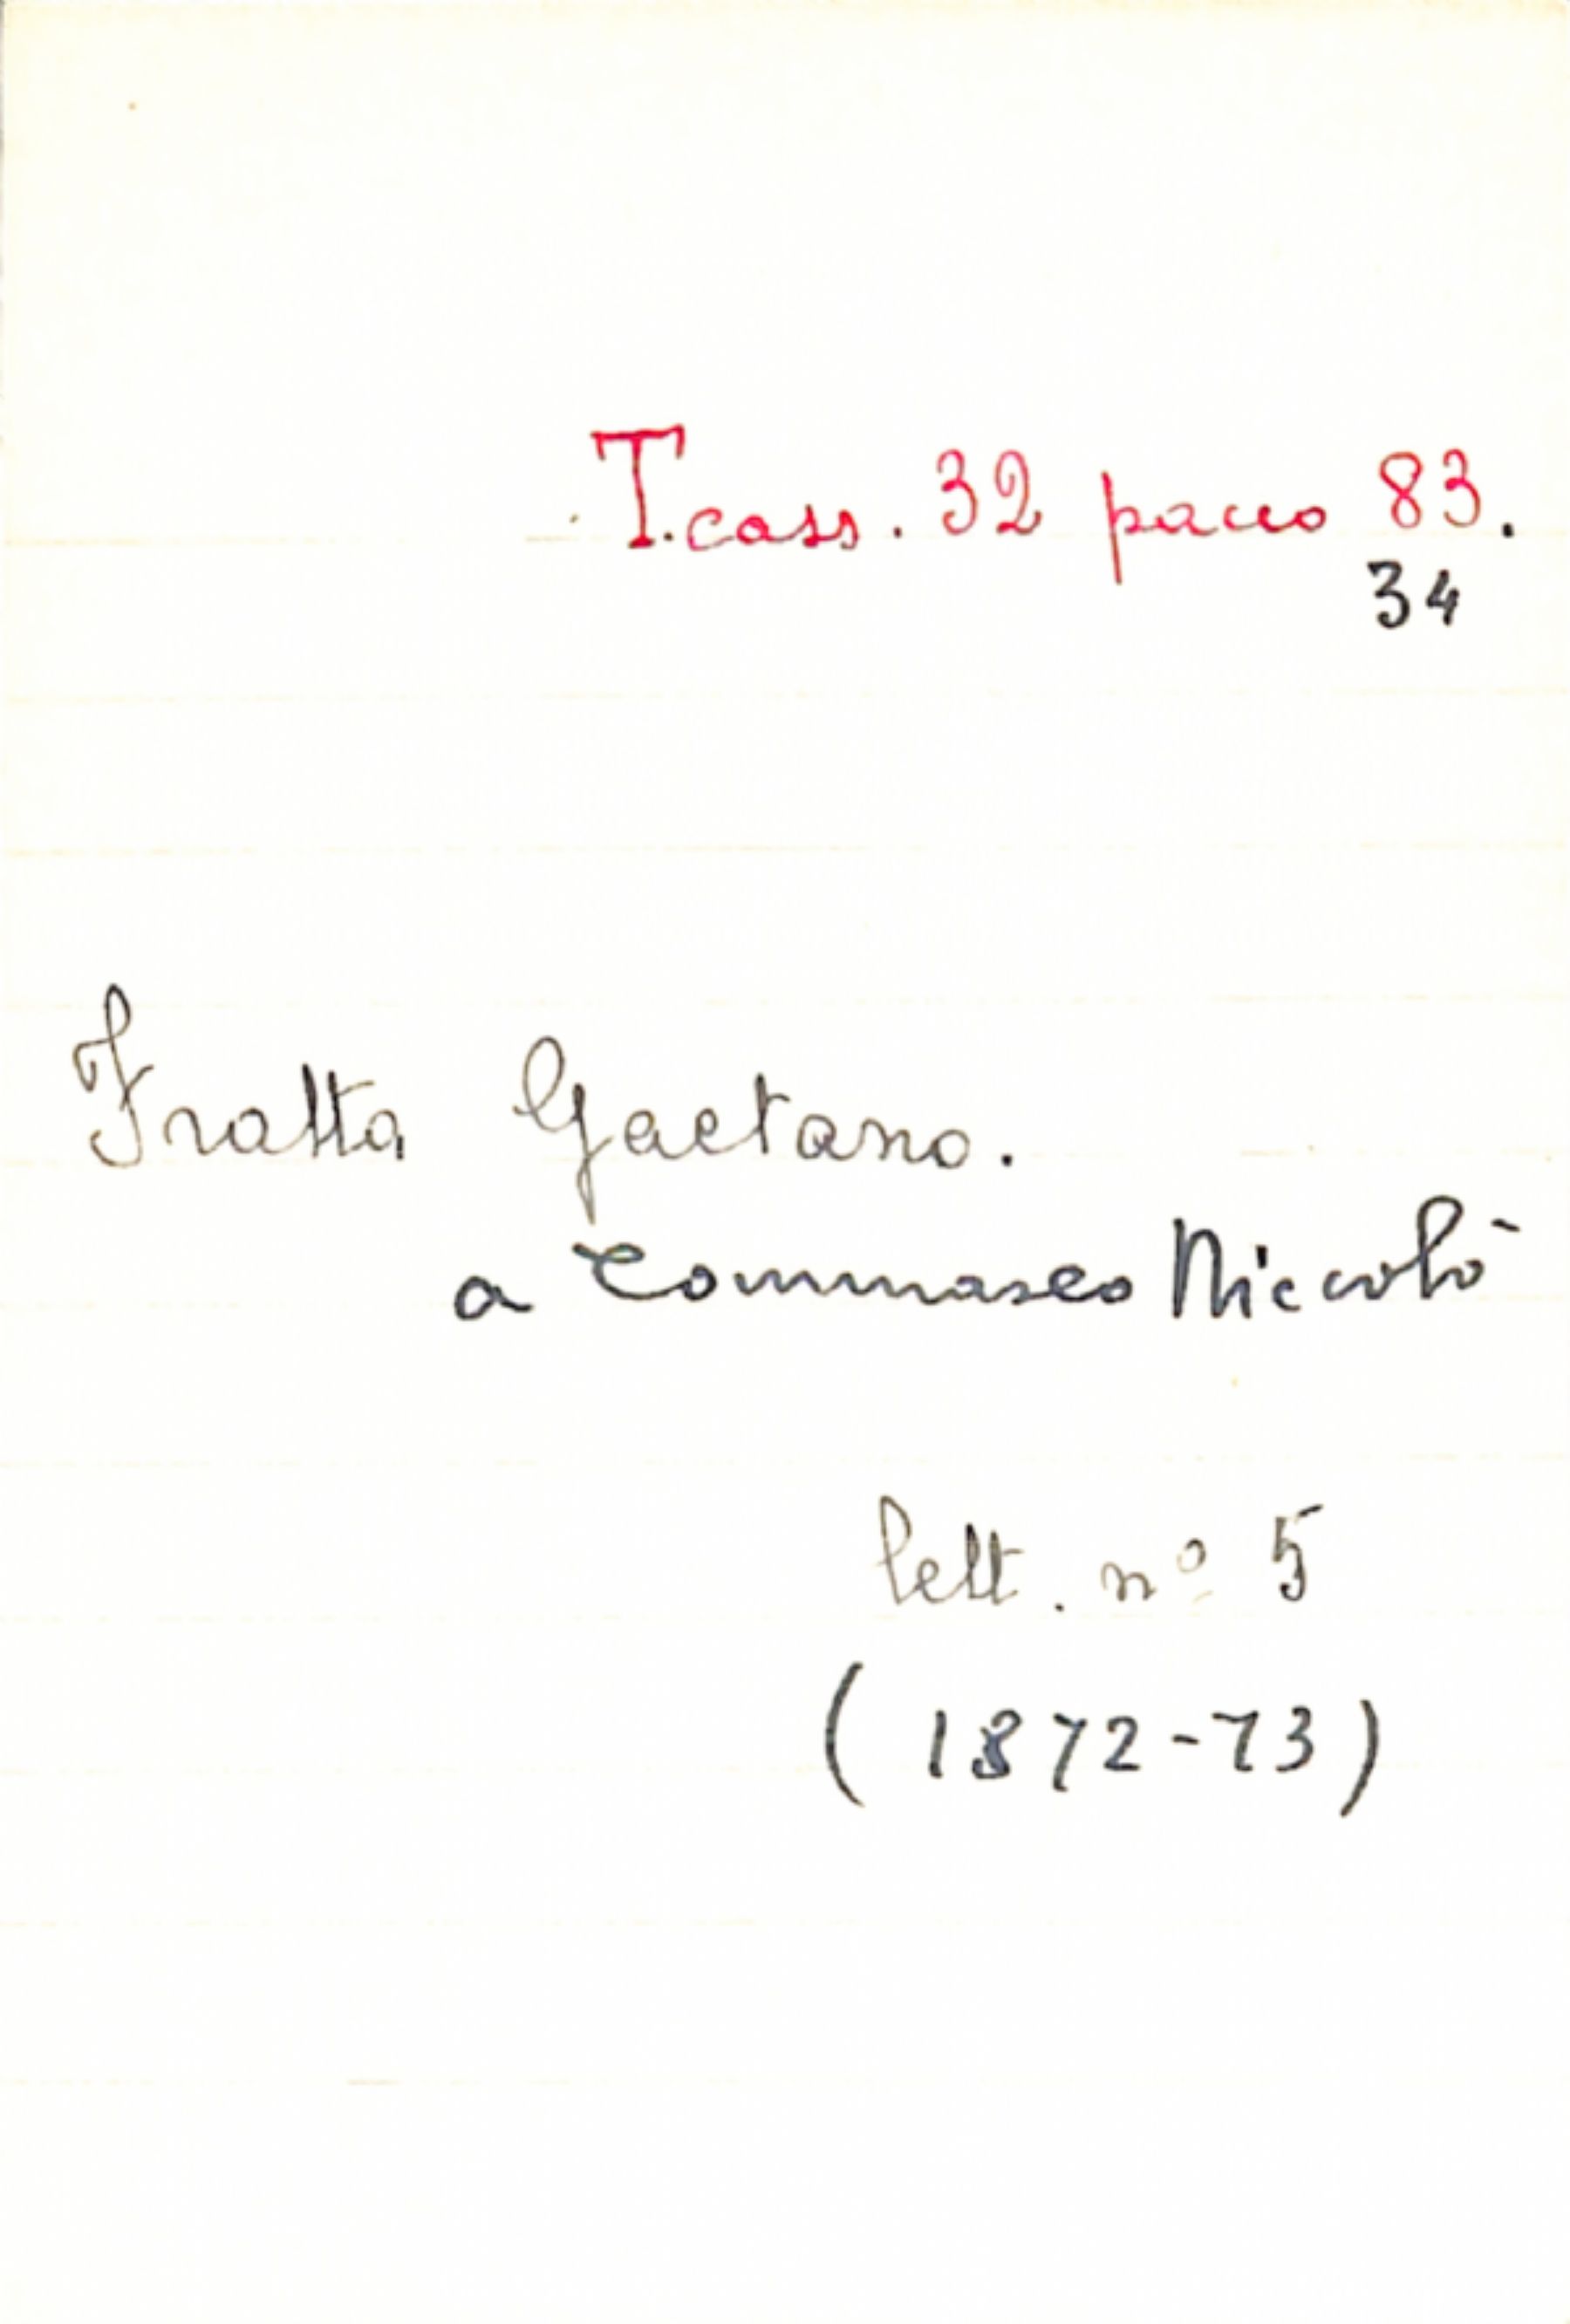 T. cass. 32 pacco 83.
34
Fratta Gaetano.
a Tommaseo Niccolò
lett. nº 5
(1872-73)